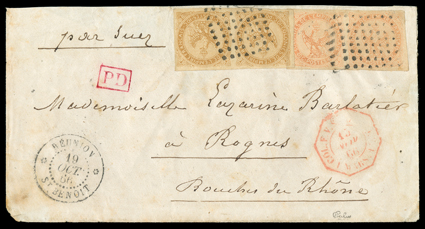 par Suez
PD
Mademoiselle Lazarine Barlatier
à Rognes
Bouches du Rhône
REUNION
19
OCT
66
ST BENOIT